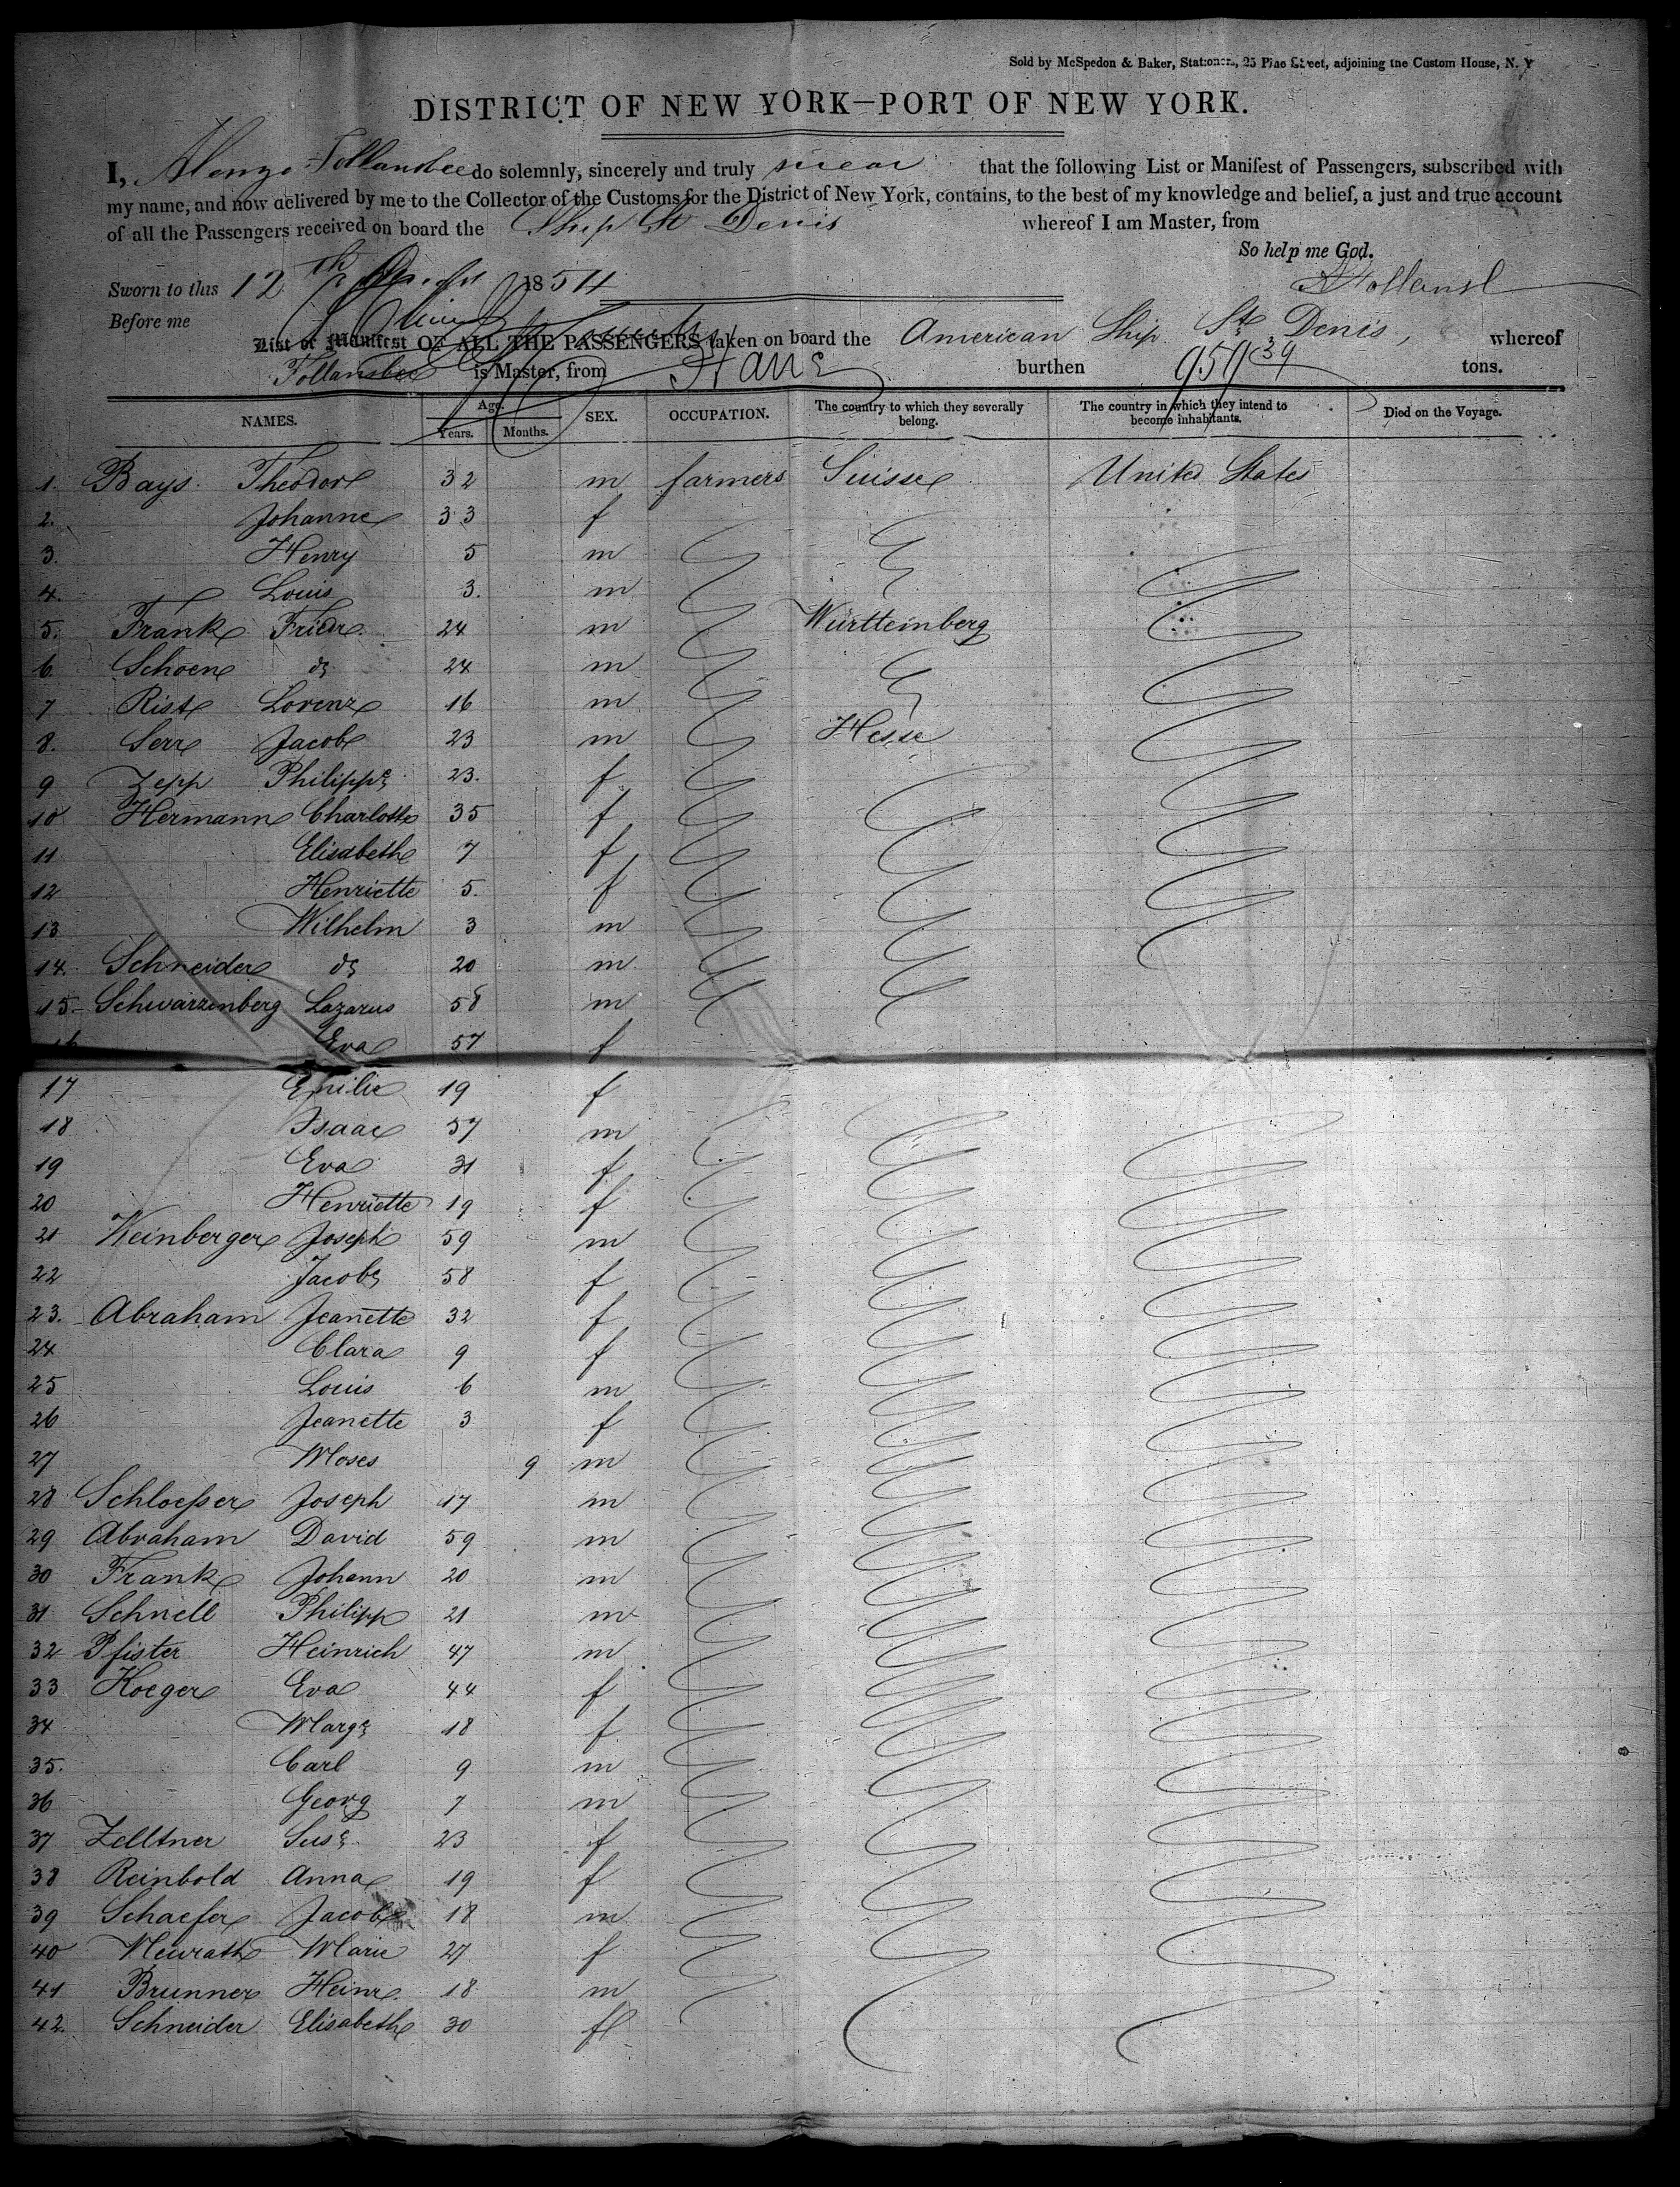 Sold by McSpedon & Baker, Stationers, 25 Pine Street, adjoining the Custom House, N. Y
DISTRICT OF NEW YORK—PORT OF NEW YORK.
I, Alonzo Follansbee do solemnly, sincerely and truly swear that the following List or Manifest of Passengers, subscribed with
my name, and now delivered by me to the Collector of the Customs for the District of New York, contains, to the best of my knowledge and belief, a just and true account
of all the Passengers received on board the Ship St Denis whereof I am Master, from
So help me God.
Sworn to this 12th 1854
Before me
List or Manifest OF ALL THE PASSENGERS taken on board the American Ship St Denis, whereof
Follansbee is Master, from Havre burthen 959 39 tons.
NAMES. Age. Years. Months. SEX. OCCUPATION. The country to which they severally belong. The country in which they intend to become inhabitants. Died on the Voyage.
1. Bays Theodor 32 m farmers Suisse United States
2. Johanne 33 f
3. Henry 5 m
4. Louis 3. m
5. Frank Friedr. 24 m Württemberg
6. Schoen do 24 m
7 Rist Lorenz 16 m
8. Serr Jacob 23 m Hesse
9 Zepp Philippe 23. f
10 Hermann Charlotte 35 f
11 Elisabeth 7 f
12 Henriette 5. f
13 Wilhelm 3 m
14. Schneider do 20 m
15 Schwarzenberg Lazarus 58 m
16 Eva 57 f
17 Emilie 19 f
18 Isaac 57 m
19 Eva 31 f
20 Henriette 19 f
21 Weinberger Joseph 59 m
22 Jacobe 58 f
23. Abraham Jeanette 32 f
24 Clara 9 f
25 Louis 6 m
26 Jeanette 3 f
27 Moses 9 m
28 Schloesser Joseph 17 m
29 Abraham David 59 m
30 Frank Johann 20 m
31 Schnell Philipp 21 m
32 Pfister Heinrich 47 m
33 Koeger Eva 44 f
34 Marge 18 f
35. Carl 9 m
36 Georg 7 m
37 Zelltner Suse 23 f
38 Reinbold Anna 19 f
39 Schaefer Jacob 18 m
40 Neurath Marie 27 f
41 Brunner Heinr. 18 m
42. Schneider Elisabeth 30 f